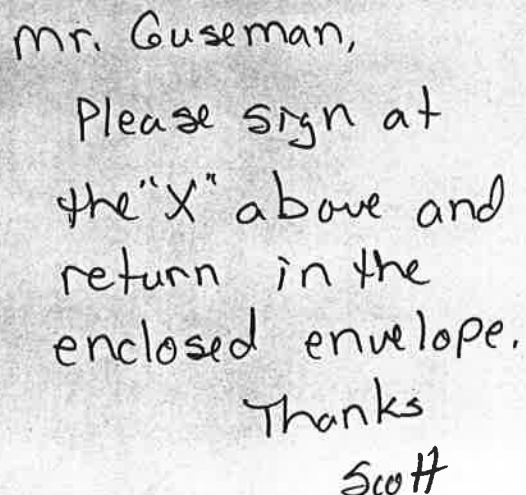 Mr. Guseman,
Please sign at
the "X" above and
return in the
enclosed envelope.
Thanks
Scott